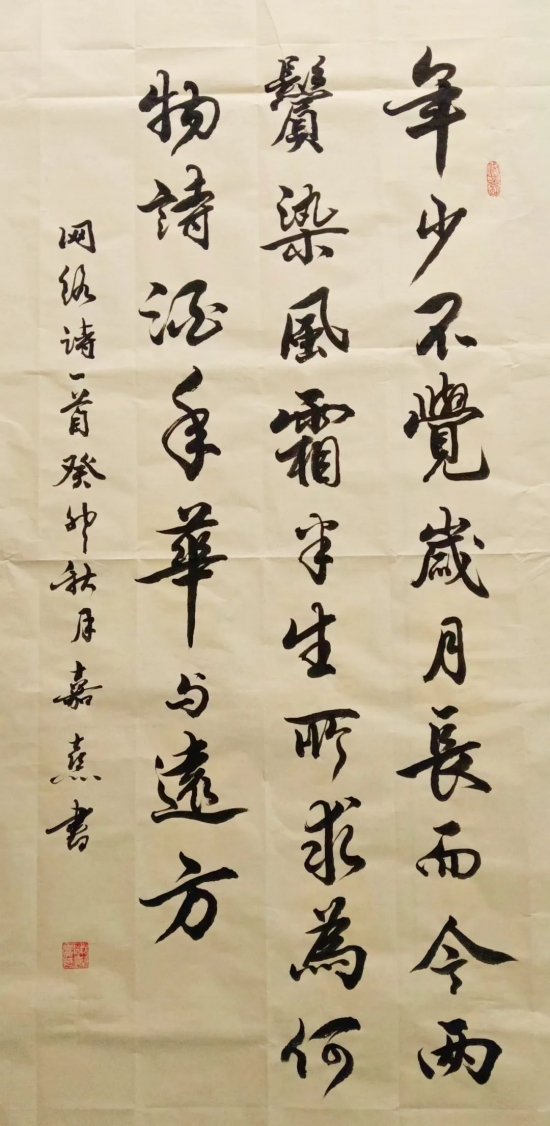 年少不覺歲月長而今兩
鬢染風霜半生所求為何
物詩酒年華与遠方
网络詩一首癸卯秋月嘉熹書